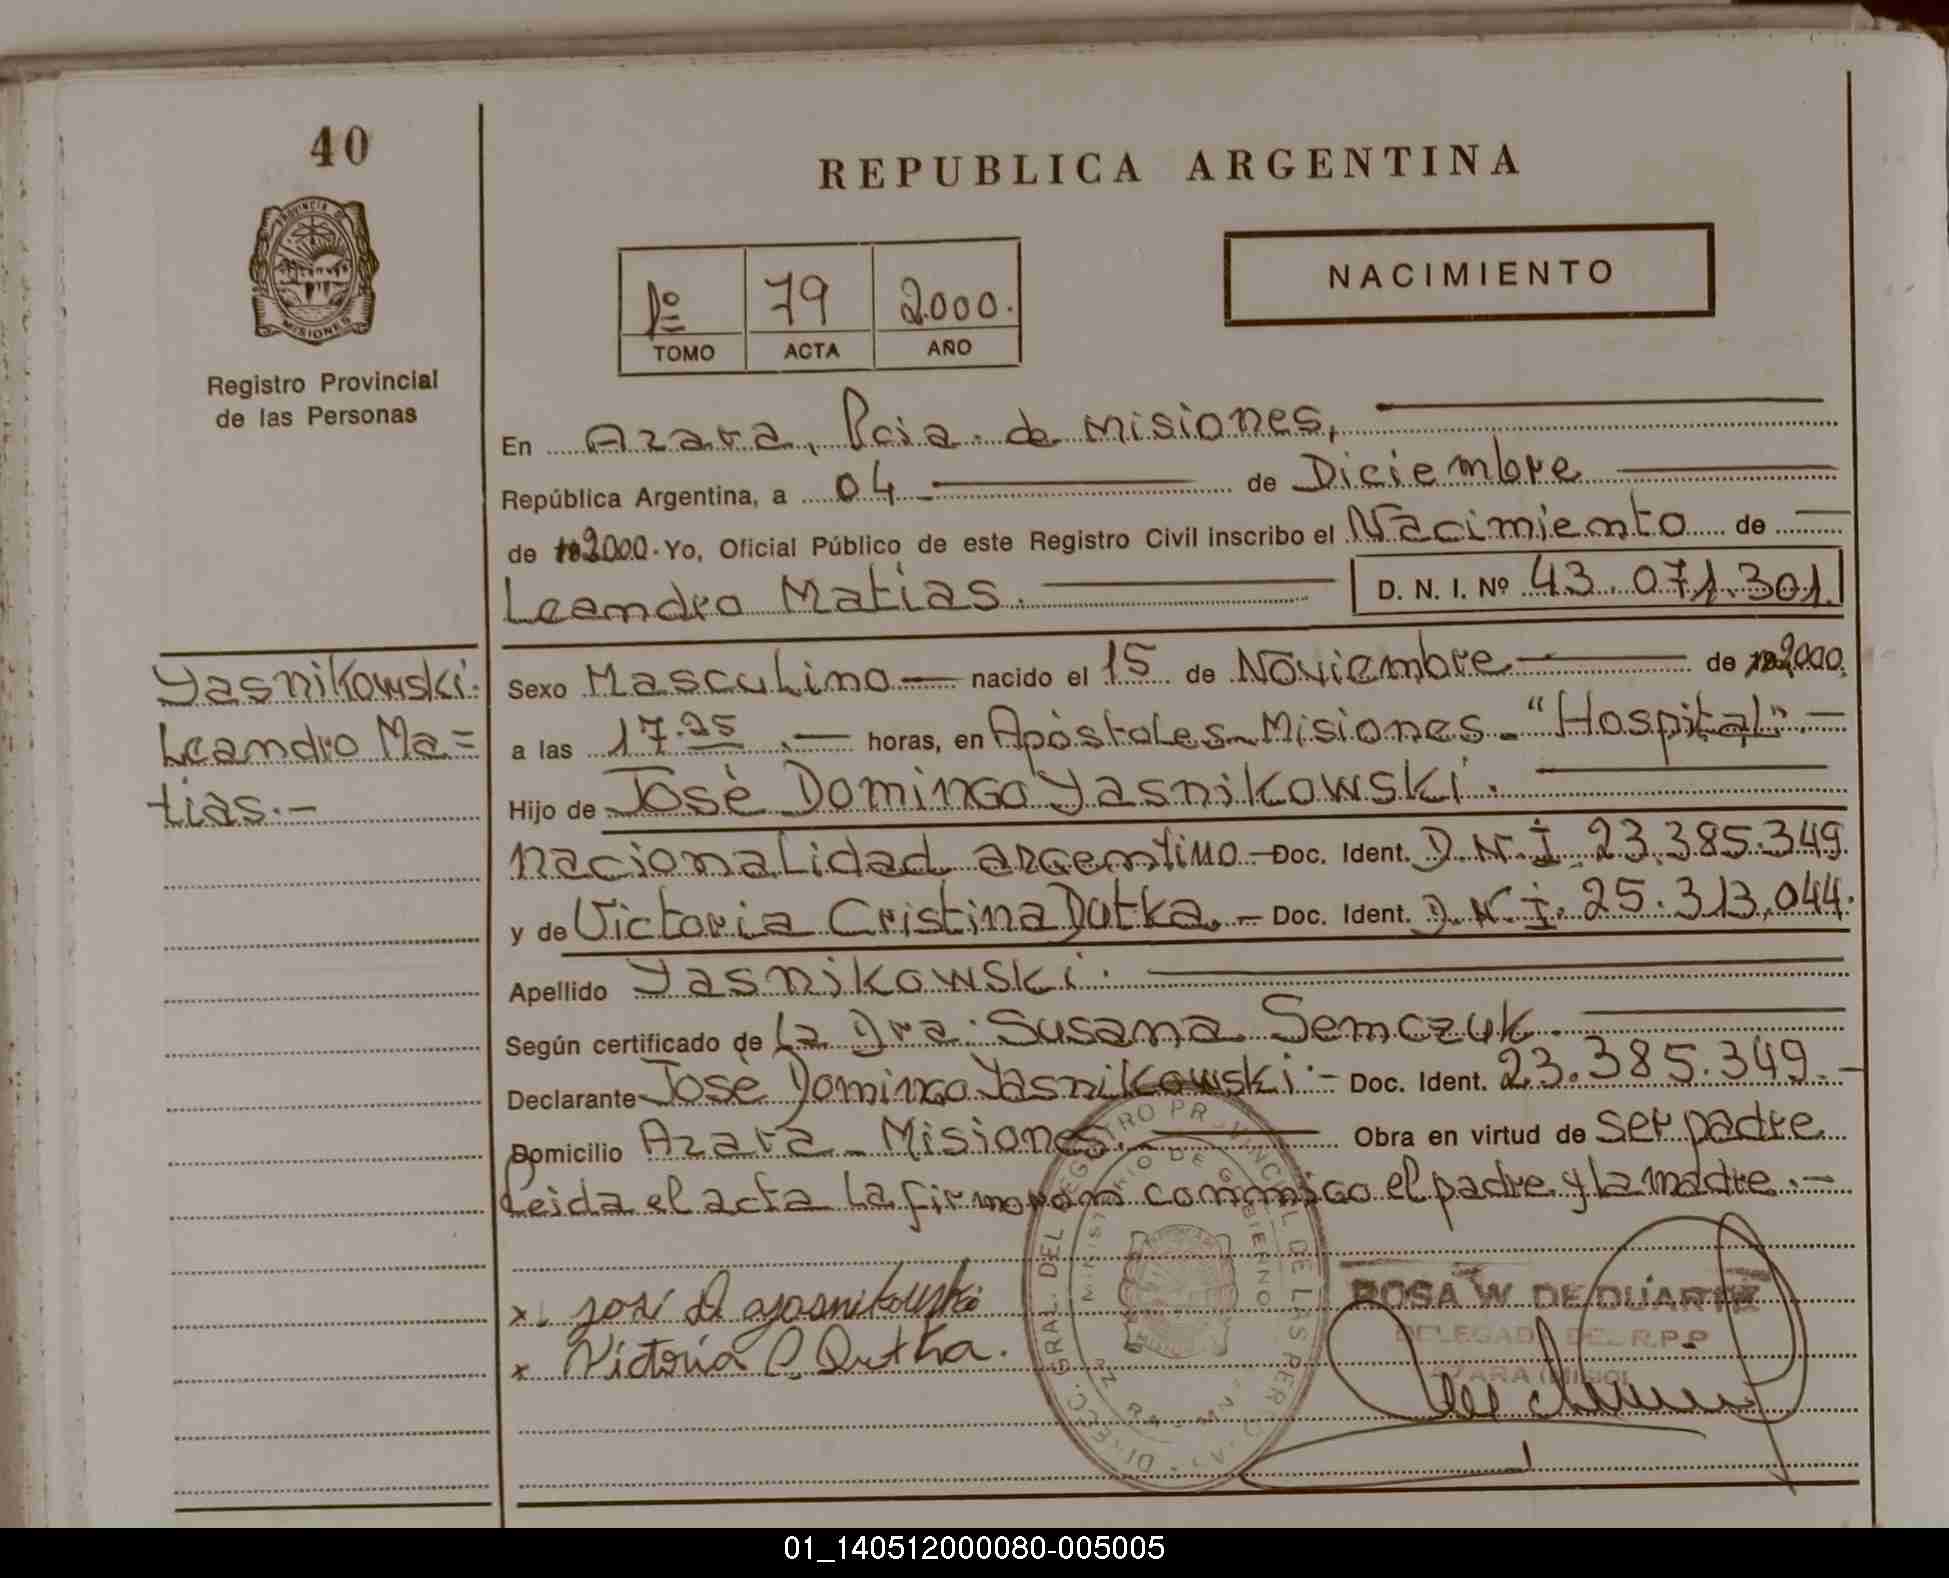 40
PROVINCIA DE
MISIONES
Registro Provincial
de las Personas
REPUBLICA ARGENTINA
NACIMIENTO
1º 79 2000.
TOMO ACTA AÑO
En Azara, Pcia. de Misiones,
República Argentina, a 04 de Diciembre
de 2000. Yo, Oficial Público de este Registro Civil inscribo el Nacimiento de
Leandro Matias. D. N. I. Nº 43.071.301.
Yasnikowski.
Leandro Ma=
tias.-
Sexo Masculino nacido el 15 de Noviembre de 2000.
a las 17.25 horas, en Apóstoles-Misiones-"Hospital".-
Hijo de Josè Domingo Yasnikowski.
nacionalidad argentino- Doc. Ident. D.N.I. 23.385.349.
y de Victoria Cristina Dutka.- Doc. Ident. D.N.I. 25.313.044.
Apellido Yasnikowski.
Según certificado de la Dra. Susana Semczuk.
Declarante Josè Domingo Yasnikowski.- Doc. Ident. 23.385.349.-
Domicilio Azara - Misiones. Obra en virtud de ser padre
Leida el acta la firmaran conmigo el padre y la madre.-
x. José D Yasnikowski
x Victoria C. Dutka.
DIRECC. GRAL. DEL REGISTRO PROVINCIAL DE LAS PERSONAS
MINISTERIO DE GOBIERNO
ROSA W. DE DUARTE
DELEGADA DEL R.P.P.
AZARA (MISIO
01_140512000080-005005